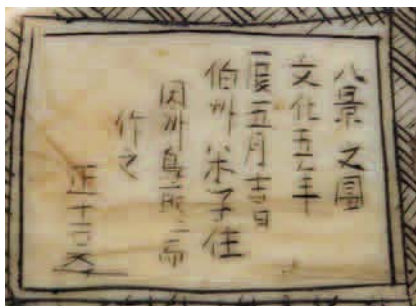 八景之圖
文化五年
五月吉日
伯州米子住
因州鳥取二而
作之